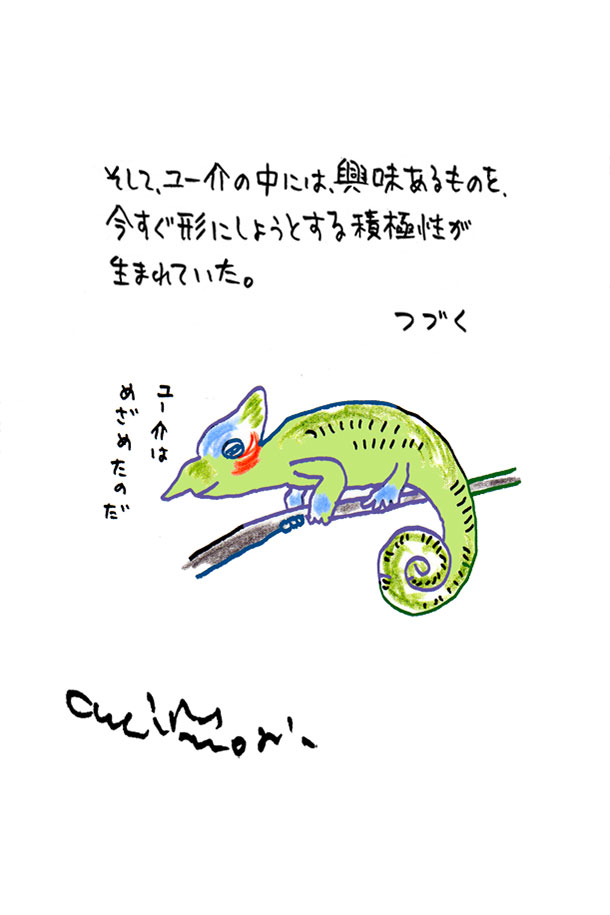 そして、ユー介の中には、興味あるものを、
今すぐ形にしようとする積極性が
生まれていた。
つづく
ユー介は
めざめたのだ